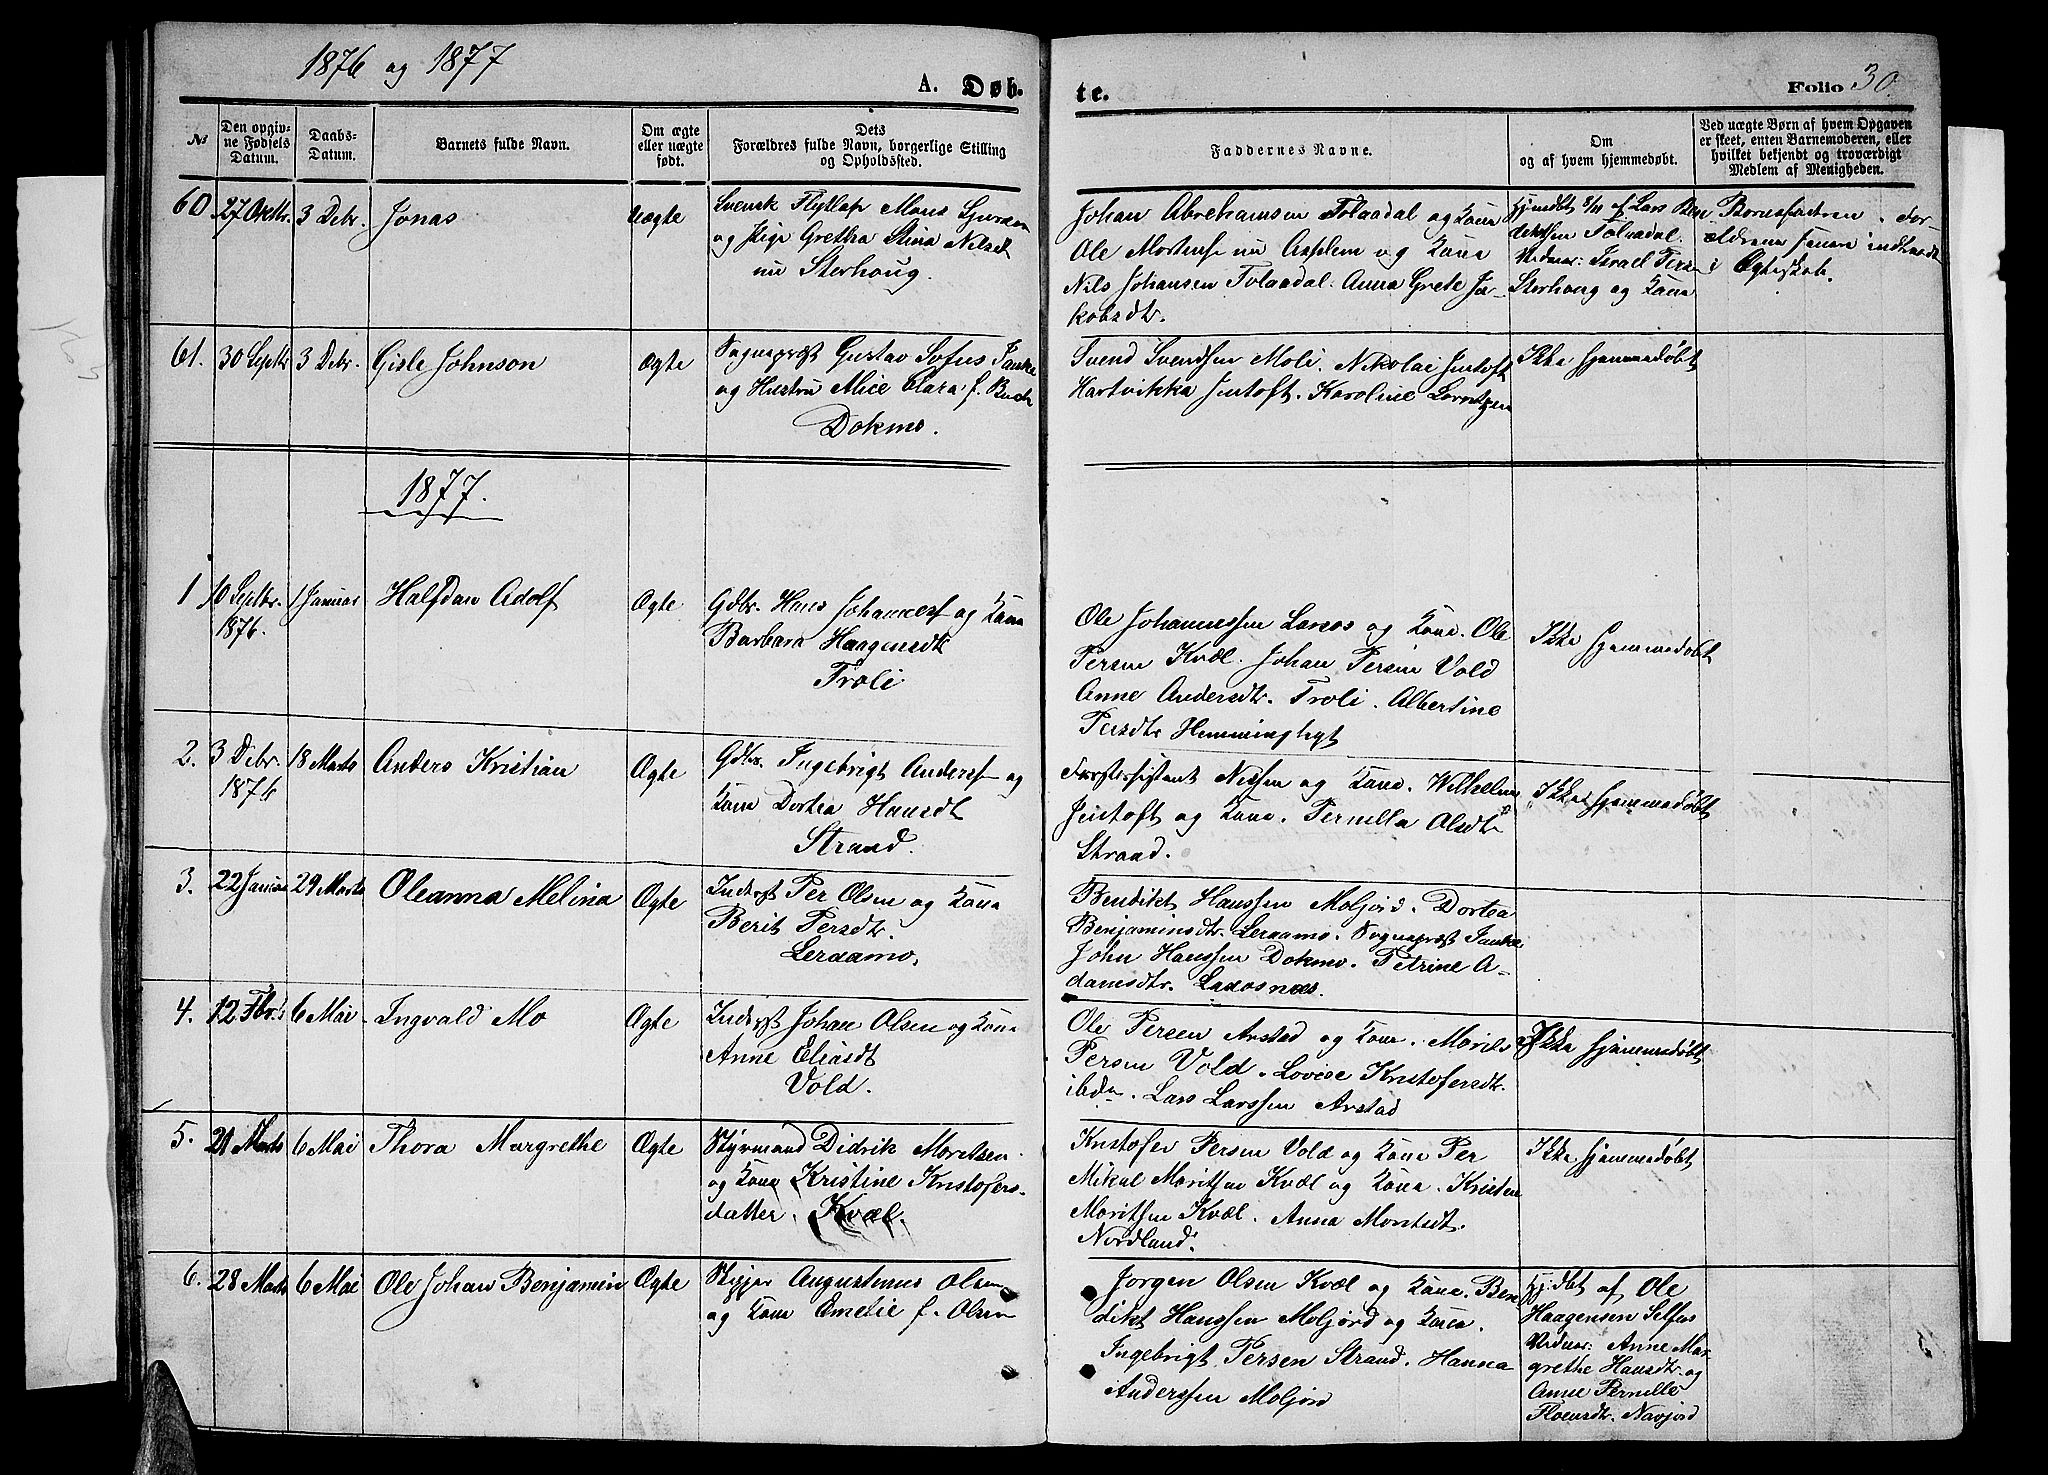 1876 og 1877
A. Døb-
te.
Folio 30
№
Den opgiv-
ne Fødsels
Datum.
Daabs-
Datum.
Barnets fulde Navn.
Om ægte
eller uægte
født.
Dets
Forældres fulde Navn, borgerlige Stilling
og Opholdssted.
Faddernes Navne.
Om
og af hvem hjemmedøbt.
Ved uægte Børn af hvem Opgaven
er skeet, enten Barnemoderen, eller
hvilket bekjendt og troværdigt
Medlem af Menigheden.
60 27 Oktbr. 3 Debr. Jonas Uægte
Svensk Flytlap Mons Sjursen
og Pige Gretha Stina Nilsdt
nu Storhaug.
Johan Abrahamsen Tolaadal og Kona
Ole Mortensen nu Asplem og Kona
Nils Johansen Tolaadal. Anna Grete Ja-
kobsdtr.
Hjmdbt 8/11 af Lars Ben
diktsen Tolaadal.
Vidner: Israel Persen
Storhaug og Kona
Barnefadren. For-
ældrene senere indtraadt
i Ægteskab.
61. 30 Septbr 3 Debr. Gisle Johnson Ægte
Sognepræst Gustav Sofus Janke
og Hustru Alice Clara f. Buck
Dokmo.
Svend Svendsen Moli. Nikolai Jentoft
Hartvikka Jentoft. Karoline Lorentzen
Ikke hjemmedøbt
1877.
1 10 Septbr.
1876.
1 Januar Halfdan Adolf Ægte
Gdbr. Hans Johannesf og Kona
Barbara Haagensdt
Troli
Ole Johannessen Larsos og Kone. Ole
Persen Kvæl. Johan Persen Vold
Anne Andersdtr. Troli. Albertine
Persdtr Hemminghyt
Ikke hjemmedøbt
2. 3 Debr.
1876
18 Marts Anders Kristian Ægte
Gdbr. Ingebrigt Andersf og
Kone Dortea Hansdt
Strand.
Forstassistent Nissen og Kone. Wilhelm
Jentoft og Kone. Pernilla Olsdtr
Strand.
Ikke hjemmedøbt
3. 22 Januar 29 Marts Oleanna Melina Ægte
Inderst Per Olsen og Kona
Berit Persdtr.
Leraamo.
Bendikt Hanssen Moljord. Dortea
Benjaminsdtr. Leraamo. Sognepræst Janke
John Hanssen Dokmo. Petrine A-
damsdtr. Laxosnæs.
4. 12 Fbr. 6 Mai Ingvald Mo Ægte
Inderst Johan Olsen og Kona
Anne Eliasdt
Vold.
Ole Persen Arstad og Kona. Morits
Persen Vold. Lovise Kristofersdtr.
ibdn. Lars Larssen Arstad
Ikke hjemmedøbt
5. 21 Marts 6 Mai Thora Margrethe Ægte
Styrmand Didrik Moritsen
og Kona Kristine Kristofers-
datter. Kvæl.
Kristofer Persen Vold og Kona Per
Mikal Moritsen Kvæl og Kona. Kristen
Moritsen Kvæl. Anna Moritsdt.
Nordland.
Ikke hjemmedøbt
6. 28 Marts 6 Mai Ole Johan Benjamin Ægte
Skipper Augustinus Olsen
og Kone Emelie f. Olsen
Jorgen Olsen Kvæl og Kona. Ben
dikt Hanssen Moljord og Kona.
Ingebrigt Persen Strand. Hanna
Anderssen Moljord
Hjdbt af Ole
Haagensen Selfors
Vidner: Anne Mar
grethe Hansdtr. og
Anne Pernille
Floensdtr. Navjord